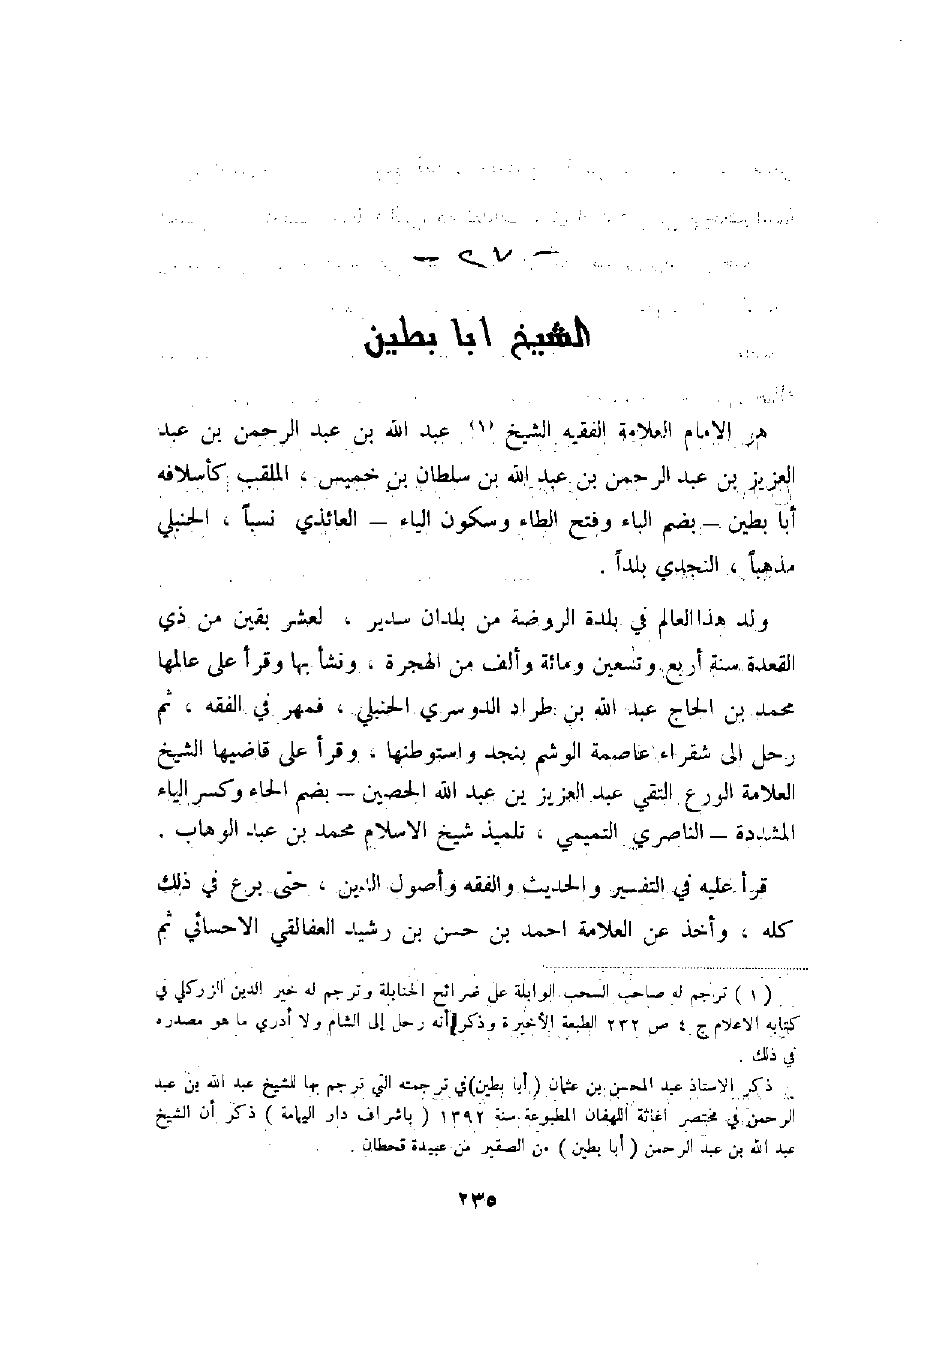 — ٢٧ —
الشيخ ابا بطين
هو الامام العلامة الفقيه الشيخ (١) عبد الله بن عبد الرحمن بن عبد
العزيز بن عبد الرحمن بن عبد الله بن سلطان بن خميس ، الملقب كأسلافه
أبا بطين – بضم الباء وفتح الطاء وسكون الياء – العائذي نسباً ، الحنبلي
مذهباً ، النجدي بلداً .
ولد هذا العالم في بلدة الروضة من بلدان سدير ، لعشر بقين من ذي
القعدة سنة أربع وتسعين ومائة وألف من الهجرة ، ونشأ بها وقرأ على عالمها
محمد بن الحاج عبد الله بن طراد الدوسري الحنبلي ، فمهر في الفقه ، ثم
رحل الى شقراء عاصمة الوشم بنجد واستوطنها ، وقرأ على قاضيها الشيخ
العلامة الورع التقي عبد العزيز بن عبد الله الحصين – بضم الحاء وكسر الياء
المشددة – الناصري التميمي ، تلميذ شيخ الاسلام محمد بن عبد الوهاب .
قرأ عليه في التفسير والحديث والفقه وأصول الدين ، حتى برع في ذلك
كله ، وأخذ عن العلامة احمد بن حسن بن رشيد العفالقي الاحسائي ثم
( ١ ) ترجم له صاحب السحب الوابلة على ضرائح الحنابلة وترجم له خير الدين الزركلي في
كتابه الاعلام ج ٤ ص ٢٣٢ الطبعة الأخيرة وذكر أنه رحل إلى الشام ولا أدري ما هو مصدره
في ذلك .
ذكر الاستاذ عبد المحسن بن عثمان ( أبا بطين) في ترجمته التي ترجم بها للشيخ عبد الله بن عبد
الرحمن في مختصر اغاثة اللهفان المطبوعة سنة ١٣٩٢ ( باشراف دار اليمامة ) ذكر أن الشيخ
عبد الله بن عبد الرحمن ( أبا بطين ) من الصقير من عبيدة قحطان .
٢٣٥